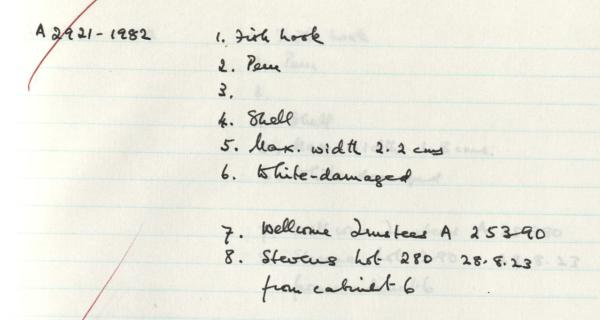 A 2921-1982 1. Fish hook
2. Peru
3.
4. Shell
5. Max. width 2.2 cms
6. White-damaged
7. Wellcome Trustees A 25390
8. Stevens lot 280 28.8.23
from cabinet 6